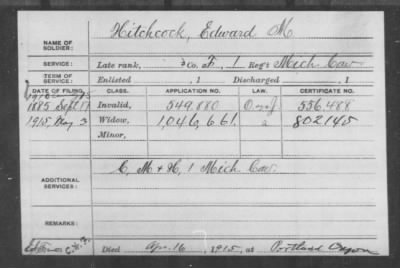 Hitchcock, Edward M
NAME OF SOLDIER:
SERVICE: Late rank, Co. F, 1 Reg't Mich Cav
TERM OF SERVICE: Enlisted , 1 Discharged , 1
DATE OF FILING. CLASS. APPLICATION NO. LAW. CERTIFICATE NO.
1885 Sept 17 Invalid, 549.880 556.488
1915, May 3 Widow, 1,046,661. a 802145
Minor,
C, M & H, 1 Mich Cav.
ADDITIONAL SERVICES:
REMARKS:
Died Apr. 16, 1915, at Portland Oregon